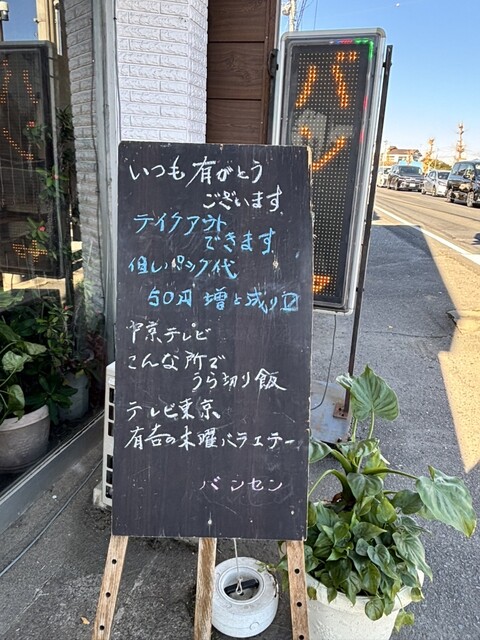 いつも有がとう
ございます
テイクアウト
できます
但しパック代
50円 増と成り〼
中京テレビ
こんな所で
うら切り飯
テレビ東京
有吉の木曜バラエテー
バンセン
バン